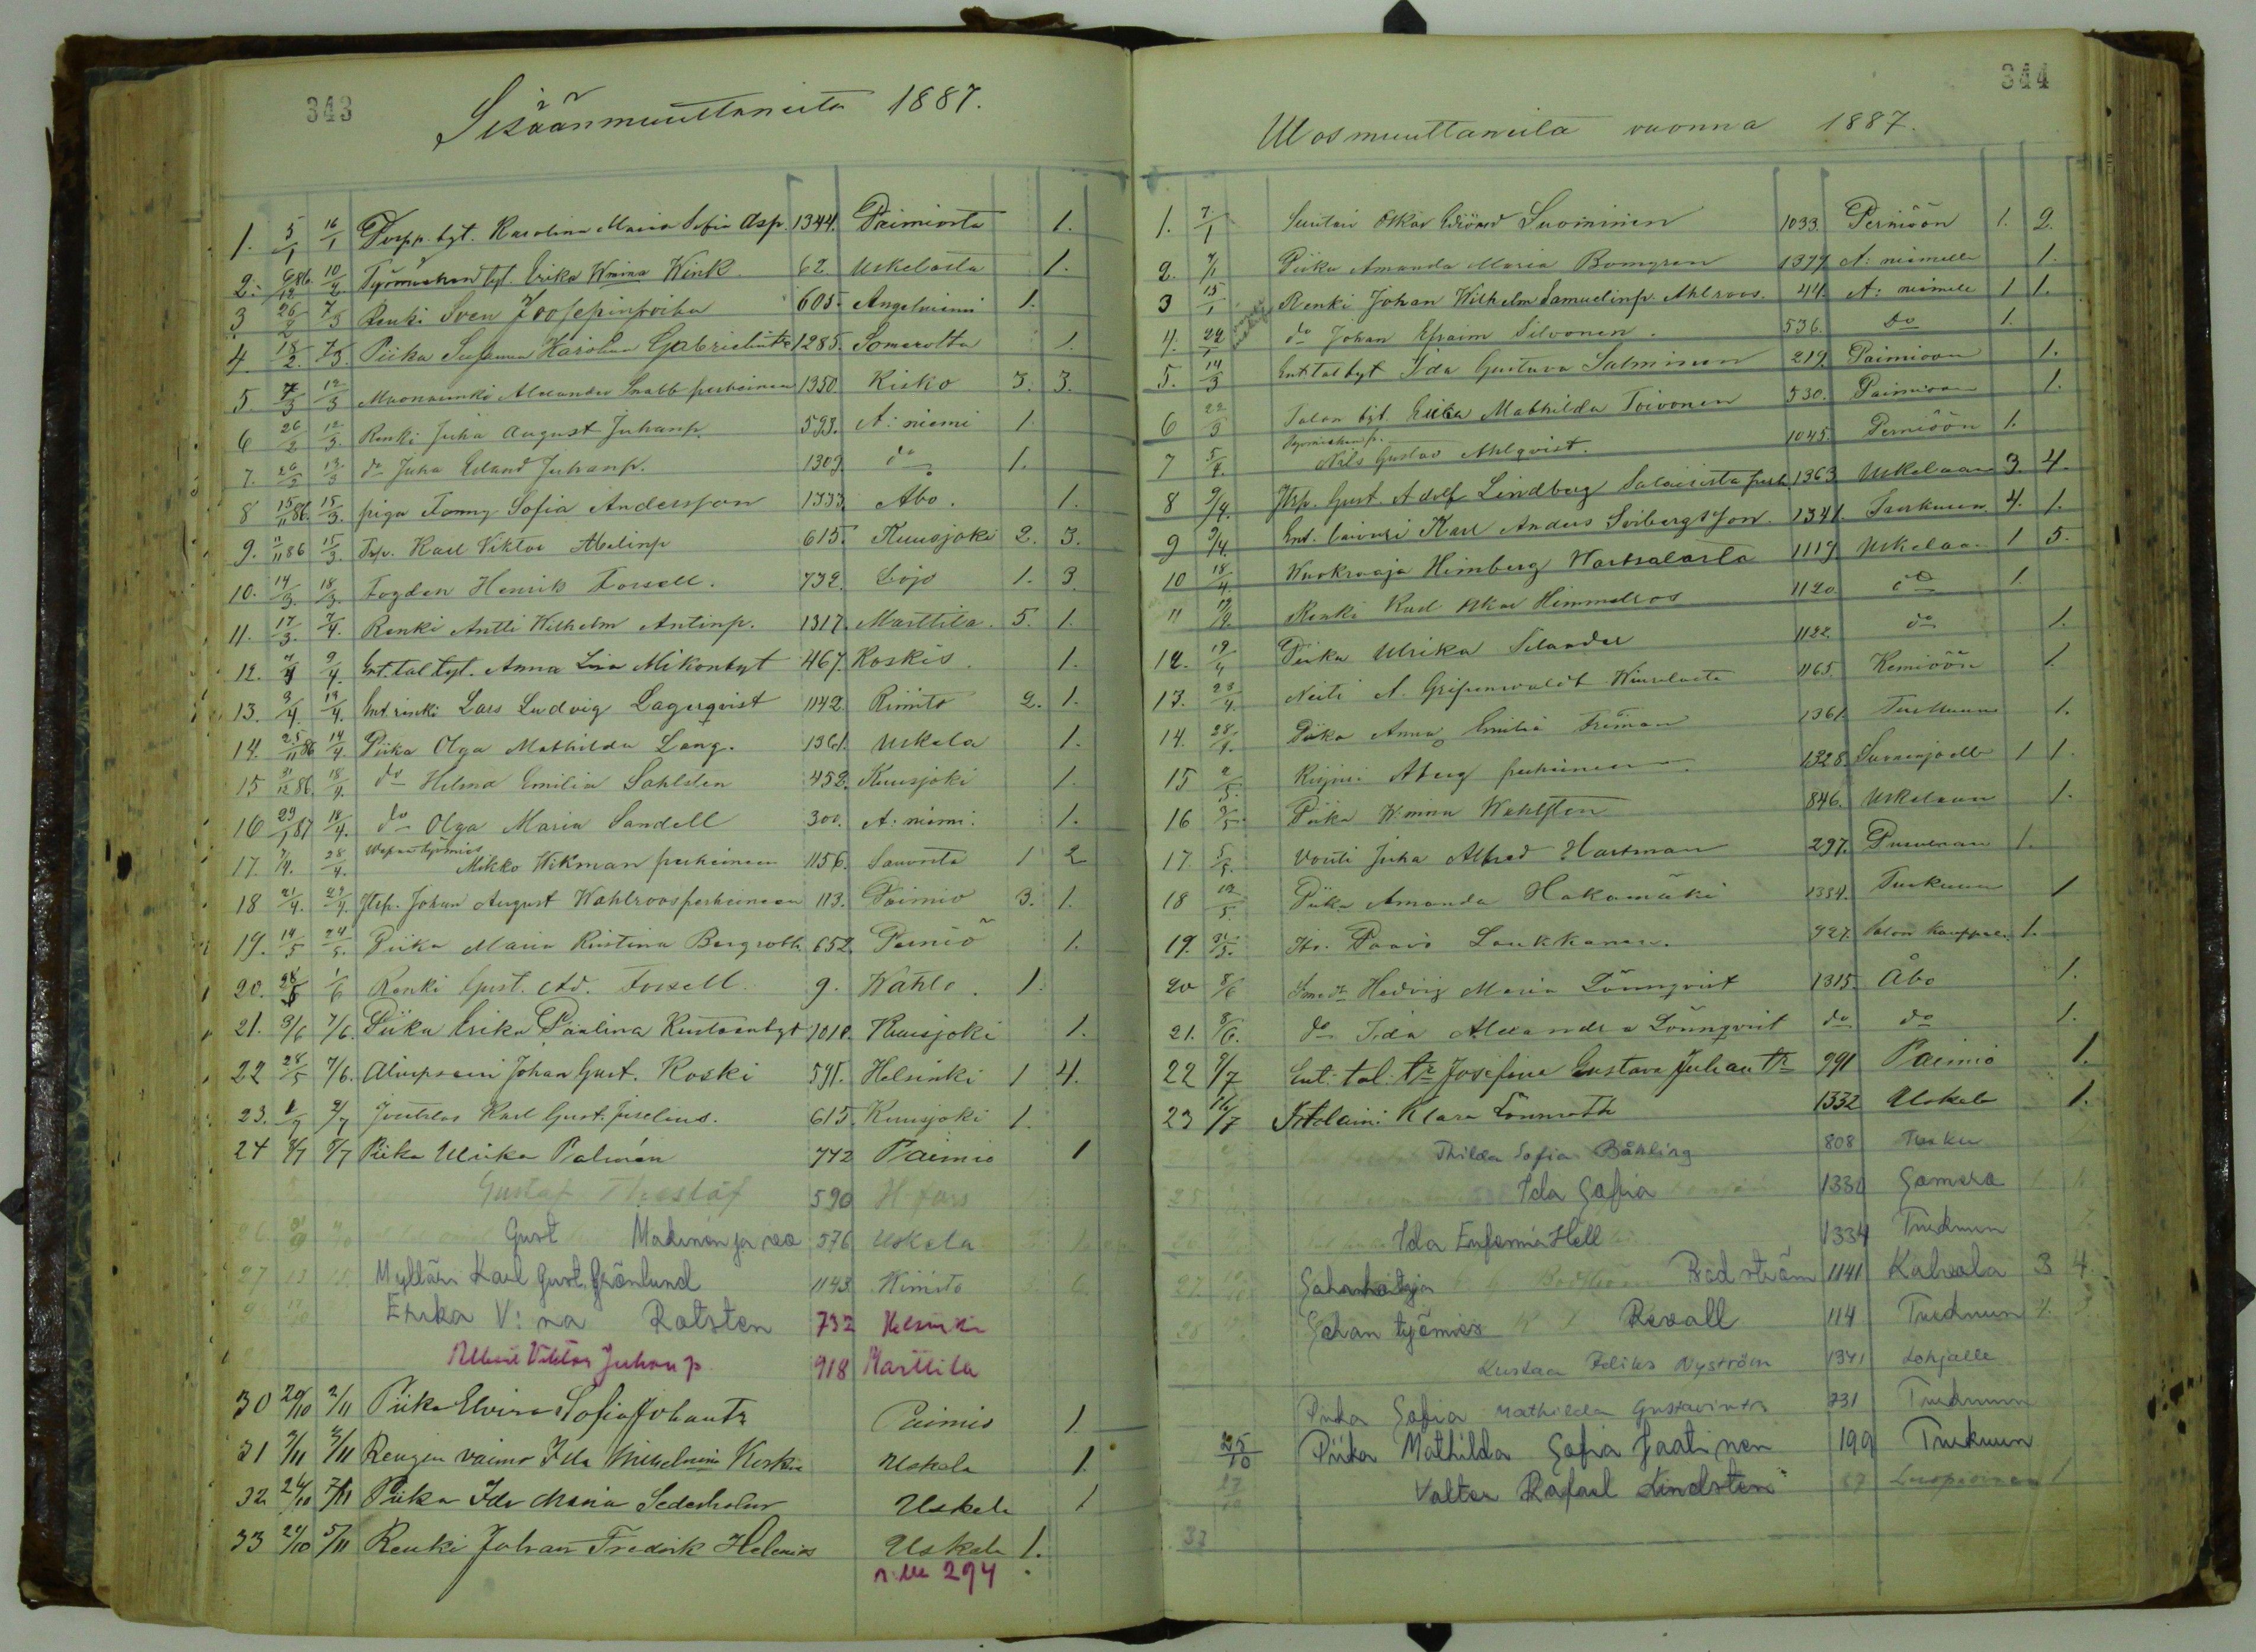 343
Sisäänmuuttaneita 1887.
1. 5/1 16/1 Torpp. tyt. Karolina Maria Sofia Asp. 1344. Paimiosta 1.
2. 6/12 86. 10/2 Työmiehen tyt. Erika Wmina Wink 62. Uskelasta 1.
3 26/2 7/3 Renki Sven Joosepinpoika 605. Angelniemi 1.
4. 18/2. 7/3. Piika Susanna Karolina Gabrielintr 1285. Somerolta 1.
5. 7/3 12/3 Muonarenki Alexander Snabb perheineen 1350. Kisko 3. 3.
6 26/2 12/3. Renki Juha August Juhanp. 593. A:niemi 1.
7. 26/2 12/3 do Juha Erland Juhanp. 1309. do 1.
8 15/11 86. 15/3. piga Fanny Sofia Andersson 1333. Abo. 1.
9. 11/11 86 15/3. Trp. Karl Viktor Abelinp 615. Kuusjoki 2. 3.
10. 14/3. 18/3. Fogden Henrik Forsell. 732. Lojo 1. 3
11. 17/3. 7/4. Renki Antti Wilhelm Antinp. 1317. Marttila. 5. 1.
12. 4/4 9/4. Ent. tal. tyt. Anna Lisa Mikontyt 467. Koskis. 1.
13. 9/4. 13/4. Ent. renki Lars Ludvig Lagerqvist 1142. Rimito 2. 1.
14. 25/11 86 14/4. Piika Olga Mathilda Lang. 1361. Uskela 1.
15 31/12 86. 18/4. do Helma Emilia Sahlsten 452. Kuusjoki 1.
16 29/1 87 18/4. do Olga Maria Sandell 300. A:niemi. 1.
17. 7/4. 28/4. Mikko Wikman perheineen 1156. Sauvosta 1 2
18 21/4. 29/4. Itsp. Johan August Wahlroos perheineen 113. Paimio 3. 1.
19. 14/5 24/5. Piika Maria Kristina Bergroth 652. Perniö 1.
20. 28/5 1/6 Renki Gust. Ad. Forsell. 9. Wahto. 1.
21. 3/6 7/6. Piika Erika Paulina Kustaantyt 1018. Kuusjoki 1.
22 28/5 7/6. Aliupseeri Johan Gust. Koski 591. Helsinki 1 4.
23. 2/7 Karl Gust. Juselius. 615. Kuusjoki 1.
24 8/7 8/7 Piika Ulrika Palmén 772 Paimio 1
Gustaf 590 H:fors
Gust Mäkinen ja vao 576 Uskela
27 Mylläri Karl Gust. Grönlund 1143 Kimito
Erika V:na Rotsten 732 Helsinki
Albert Viktor Juhanp. 918 Marttila
30 20/10 2/11 Piika Elvira Sofia Johantr Paimio 1
31 3/11 3/11 Rengin vaimo Ida Wilhelmina Koski Uskela 1.
32 26/10 7/11 Piika Ida Maria Sederholm Uskela 1
33 24/10 5/11 Renki Johan Fredrik Helenius Uskela 1.
294
344
Ulosmuuttaneita vuonna 1887.
1. 7/1 Suutari Oskar Edvard Suominen 1033. Perniöön 1. 2.
2. 7/1 Piika Amanda Maria Bomgren 1377. A:niemelle 1.
3 15/1 Renki Johan Wilhelm Samuelinp. Ahlroos. 44. A:niemelle 1 1.
4. 22/1 do Johan Efraim Silvonen. 536. Do 1.
5. 14/3 Ent. tal. tyt Ida Gustava Salminen 219. Paimioon 1.
6 22/3 Talon tyt. Erika Mathilda Toivonen 530. Paimioon 1.
7 5/4. Työmiehen p. Nils Gustav Ahlqvist. 1045. Perniöön 1.
8 9/4. Itsp. Gust. Adolf Lindberg 1363. Uskelaan 3. 4.
9 9/4. Karl Anders 1341. Turkuun. 4. 1.
10 18/4 Wuokraaja Himberg Wartsalasta 1119. Uskelaan 1 5.
11 19/4. Renki Karl Oskar Himmelroos 1120. do 1.
12. 19/4 Piika Ulrika Selander 1122. do 1.
13. 23/4. Neiti A. Gripenwaldt 1165. Kemiöön 1.
14. 28/4. Piika Anna Emilia Freman 1361. Turkuun 1.
15 2/5. Åberg perheineen 1328. Suvenjoelle 1 1.
16 3/5. Piika W:mina Wahlsten 846. Uskelaan 1.
17. 5/5. Vouti Juha Alfred Hartman 297. 1.
18 12/5. Piika Amanda Hakamäki 1354. Turkuun 1
19. 31/5. Its. Paavo Laukkanen. 927. Salon kauppal. 1.
20 8/6 Hedvig Maria Lönnqvist 1315. Åbo 1.
21. 8/6. do Ida Alexandra Lönnqvist do do 1.
22 9/7 Ent. tal. tr Josefina Gustava Juhantr 991 Paimio 1.
23 16/7 Itsellain: Klara Lönnroth 1332 Uskela 1.
Thilda Sofia Båhling 808 Turku
25 Ida Sofia 1330 Somero
Ida Eufemia Hell 1334 Turkuun
27. Sahanhoitaja Rodström 1141 Kalvola 3 4.
28 Sahan työmies Rexall 114 Turkuun
Kustaa Feliks Nyström 1341 Lohjalle
Piika Sofia Mathilda Gustavintr 731 Turkuun
25/10 Piika Mathilda Sofia Jaatinen 199 Turkuun
27/10 Valter Rafael Lindsten 87 1
32